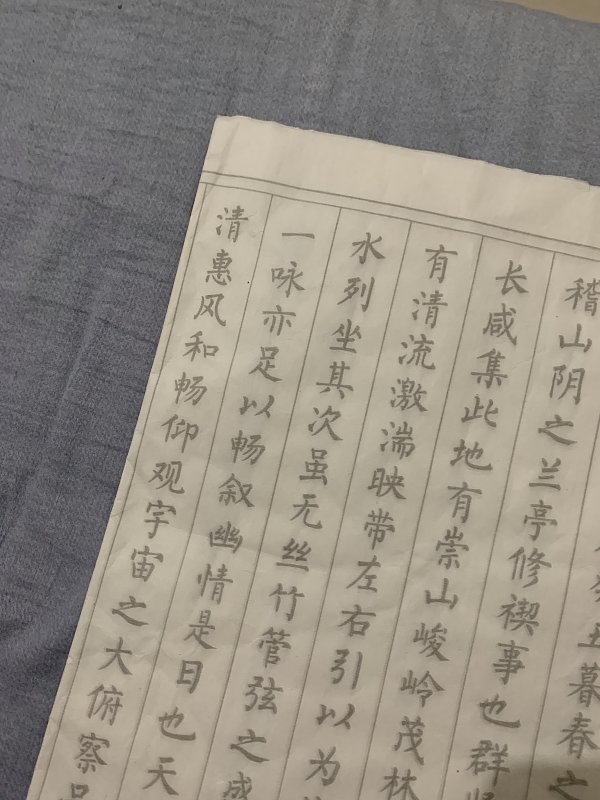 丑暮春之
稽山阴之兰亭修禊事也群
长咸集此地有崇山峻岭茂林
有清流激湍映带左右引以为
水列坐其次虽无丝竹管弦之盛
一咏亦足以畅叙幽情是日也天
清惠风和畅仰观宇宙之大俯察